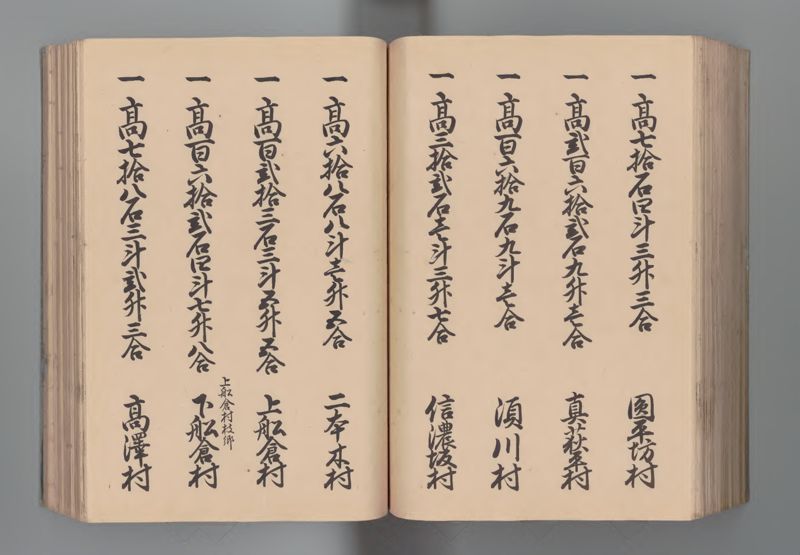 一 高七拾石四斗三升三合 圓平坊村
一 高弐百六拾弐石九升壱合 真萩平村
一 高百六拾九石九斗壱合 須川村
一 高三拾弐石壱斗三升七合 信濃坂村
一 高六拾八石八斗壱升五合 二本木村
一 高百弐拾三石三斗五升五合 上舩倉村
上舩倉村枝郷
一 高百六拾弐石四斗七升八合 下舩倉村
一 高七拾八石三斗弐升三合 高澤村